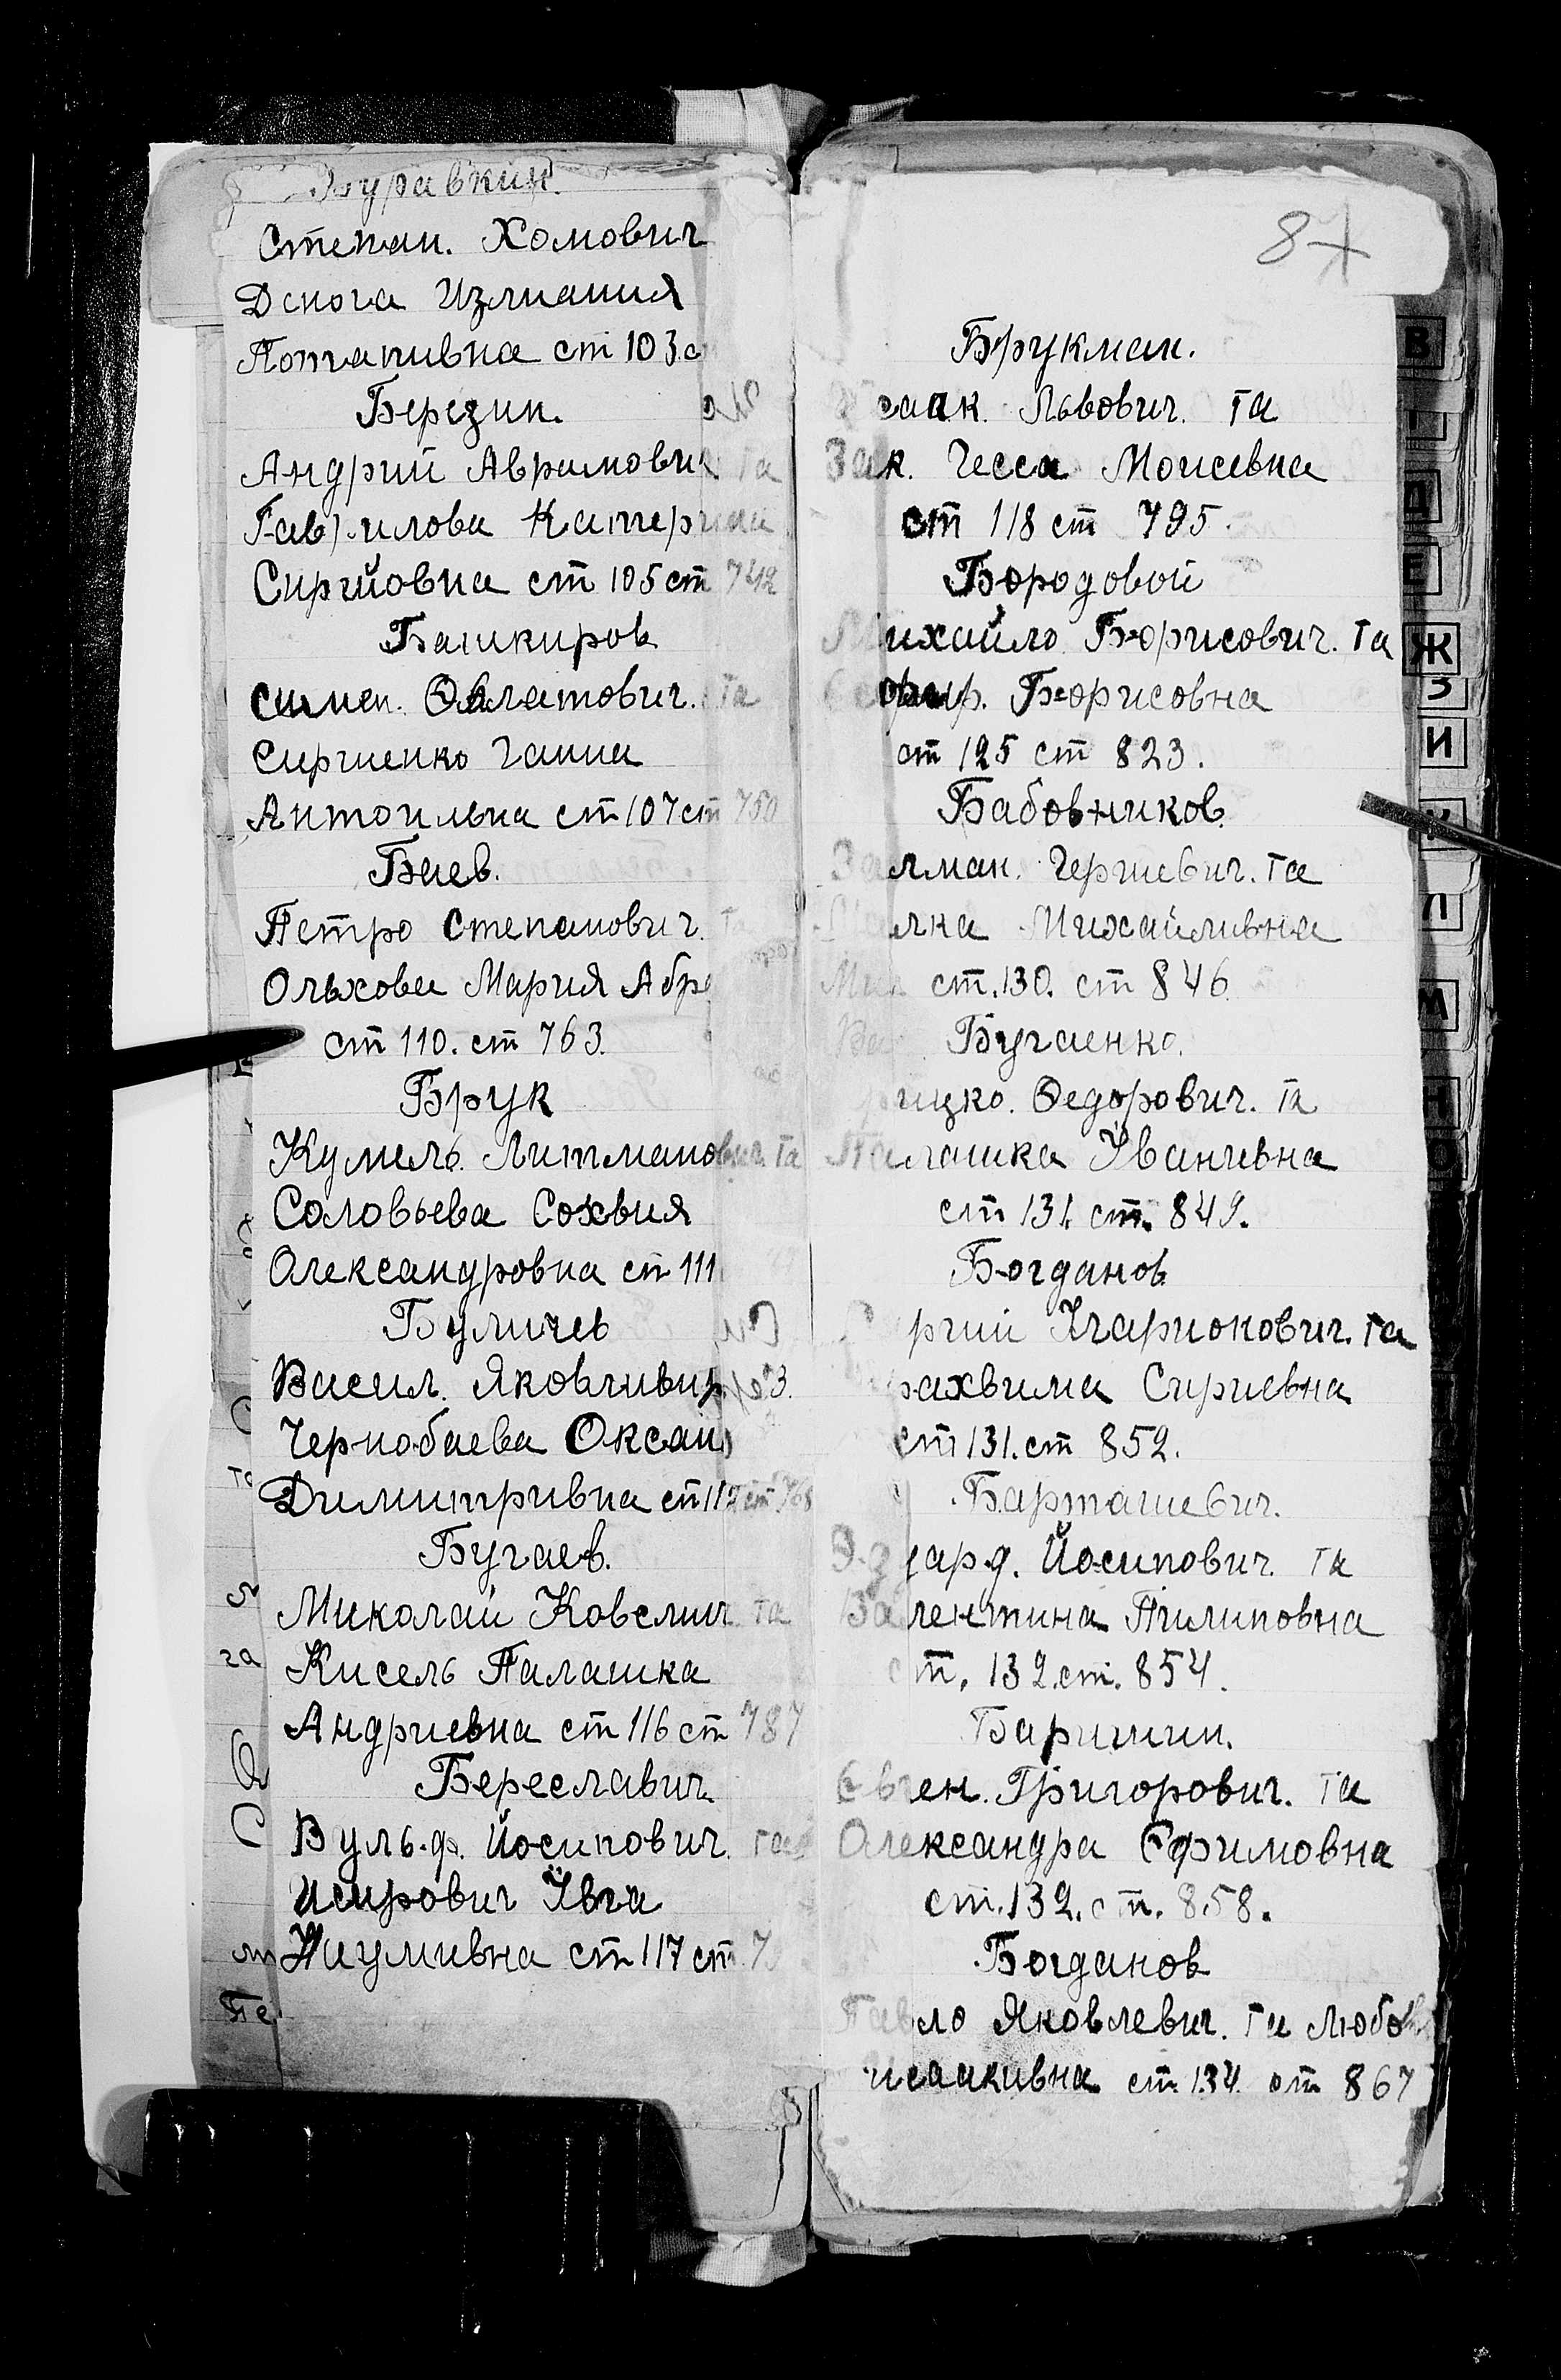 Журавкин.
Степан. Хомович
Дснога Измания
Потапивна ст 103.с
Березин.
Андрий Аврамович Та
Гаврилова Катерина
Сиргйовна ст 105 ст 742
Башкиров
Симен. Та
Сиргиенко Ганна
Антонивна ст 107 ст 750
Биев.
Петро Степанович.
Ольхова Мария Абр
ст 110. ст 763.
Брук
Кумель. Литманович. Та
Соловьева Сохвия
Олександровна ст 111
Буличев
Васил. Яковливич
Чернобаева Оксан
Димитривна ст 112 ст 768
Бугаев.
Миколай Ковелич та
Кисель Палашка
Андриевна ст 116 ст 787
Береславич
Вульф. Йосипович. та
Исирович Ївга
Наумивна ст 117 ст 7
87
Брукман.
саак. Львович. Та
Зак. Гесса Моисевна
ст 118 ст 795.
Бородовой
Михайло. Борисович. Та
Борисовна
ст 125 ст 823.
Бабовников
Залман. Гершевич. Та
лка Михайливна
ст. 130. ст 846
Бугаенко.
рицко. Федорович. Та
Палашка Їванивна
ст 131. ст. 849.
Богданов
ргий Іларионович. Та
рахвима Сиргиевна
ст 131. ст 852.
Барташевич.
Эдуард. Йосипович. Та
Валентина Пилиповна
ст. 132. ст. 854.
Баришин.
Євген. Григорович. Та
Олександра Єфимовна
ст. 132. ст. 858.
Богданов
Павло Яковлевич. Та Любов
Исаакивна ст. 134. ст 867
В
Д
Е
Ж
З
И
К
Л
М
Н
О